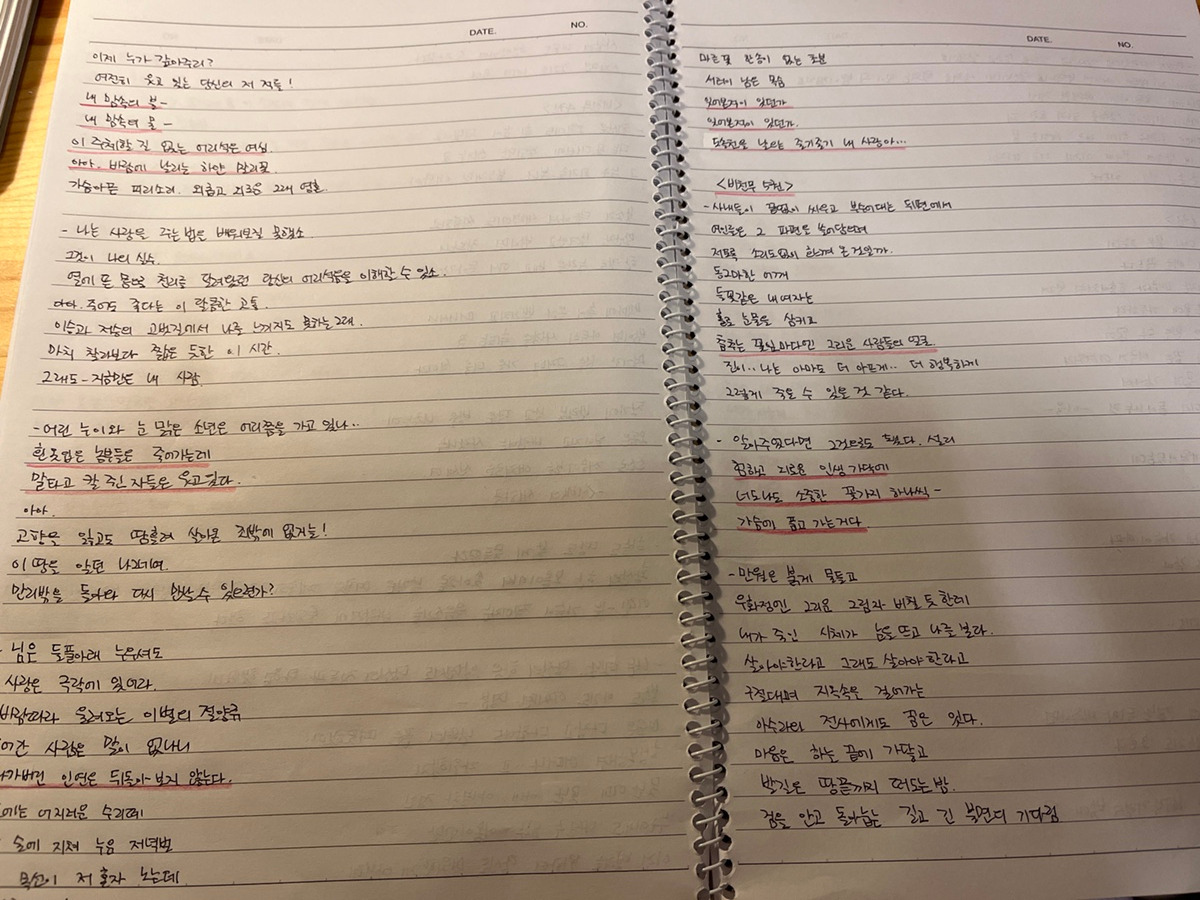 DATE. NO.
이제 누가 갚아주리?
여전히 웃고 있는 당신의 저 적들!
내 맘속의 불-
내 맘속의 물-
이 주체할 길 없는 어리석은 여심.
아아. 바람에 날리는 하얀 찔레꽃
가슴아픈 피리소리. 외롭고 괴로운 그대 영혼
- 나는 사랑을 주는 법은 배워보질 못했소
그것이 나의 실수.
열에 뜬 몸으로 천리를 달려왔던 당신의 어리석음을 이해할 수 있소.
아아. 죽어도 좋다는 이 달콤한 고통.
이승과 저승의 고빗길에서 나를 느끼지도 못하는 그대.
마치 찰라보다 짧은 듯한 이 시간.
그래도- 지금만은 내 사람.
- 어린 누이와 눈 맑은 소년은 어리쯤을 가고 있나..
흰옷입은 남부들은 죽어가는데
말타고 칼 쥔 자들은 웃고 있다.
아아.
고향을 잃고도 땅흘려 살아온 죄밖에 없거늘!
이 땅을 잊던 나그네여.
만리밖을 돌아와 다시 만날 수 있으련가?
님은 들풀아래 누우셔도
사랑은 극락에 있어라.
바람따라 들려오는 이별의 절양류
간 사람은 말이 없나니
가버린 인연은 뒤돌아 보지 않는다.
에는 어지러운 수리떼
술에 지쳐 누운 저녁벌
목선이 저 혼자 노는데
DATE. NO.
마른 꽃 한송이 없는 초분
서러이 남은 목숨
있어본적이 있던가
있어본적이 있던가.
도솔천을 날으는 줄기줄기 내 사랑아...
<비천무 5권>
- 사내들이 끝없이 싸우고 복수해대는 뒤편에서
여인들은 그 파편을 쓸어담으며
저토록 소리도없이 흐느껴 온 것일까.
동그마한 어깨
들꽃같은 내 여자는
홀로 눈물을 삼키고
춤추는 꽃잎마다엔 그리운 사람들의 얼굴.
진아.. 나는 아마도 더 아프게.. 더 행복하게
그렇게 죽을 수 있을 것 같다.
- 알아주었다면 그것으로도 됐다. 설리
험하고 괴로운 인생 가닥에
너도나도 소중한 꽃가지 하나씩-
가슴에 품고 가는거다.
- 만월은 붉게 물들고
우화정엔 그리운 그림자 비칠 듯 한데
내가 죽인 시체가 눈을 뜨고 나를 본다.
살아야한다고 그래도 살아야 한다고
구절대며 지옥속을 걸어가는
아수라의 전사에게도 꿈은 있다.
마음은 하늘 끝에 가닿고
발길은 땅끝까지 떠도는 밤.
검을 안고 돌아눕는 길고 긴 불면의 기다림